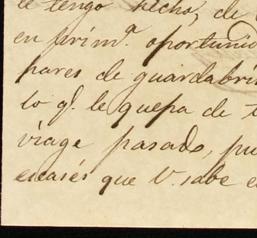 le tengo hecho, de
en prim.ª oportunid
pares de guardabri
lo q.l le quepa de t
viage pasado, pu
escasés que V. sabe e